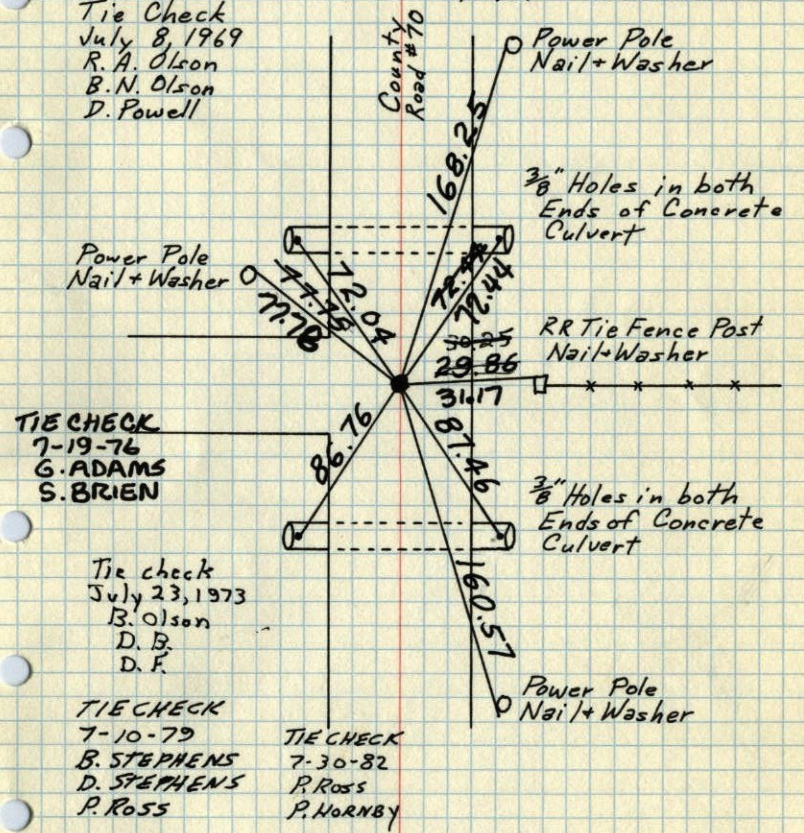 Tie Check
July 8, 1969
R. A. Olson
B. N. Olson
D. Powell
County
Road #70
Power Pole
Nail + Washer
168.25
3/8" Holes in both
Ends of Concrete
Culvert
Power Pole
Nail + Washer
77.75
77.78
72.04
72.44
RR Tie Fence Post
Nail + Washer
30.25
29.86
31.17
TIE CHECK
7-19-76
G. ADAMS
S. BRIEN
86.76
87.46
3/8" Holes in both
Ends of Concrete
Culvert
160.57
Tie check
July 23, 1973
B. Olson
D. B.
D. F.
Power Pole
Nail + Washer
TIE CHECK
7-10-79
B. STEPHENS
D. STEPHENS
P. ROSS
TIE CHECK
7-30-82
P. ROSS
P. HORNBY